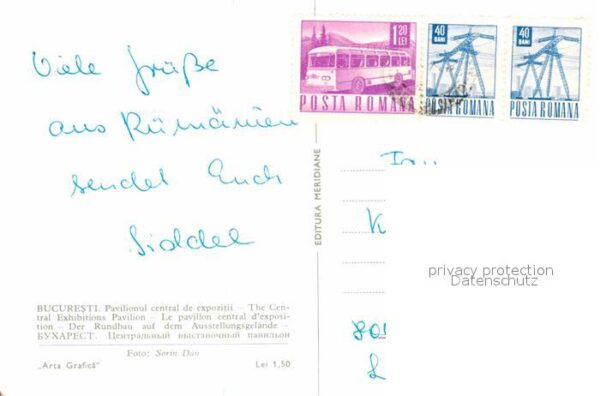 Viele Grüße
aus Rümänien
sendet Euch
1,20
LEI
POSTA ROMANA
40
BANI
POSTA ROMANA
40
BANI
POSTA ROMANA
EDITURA MERIDIANE
privacy protection
Datenschutz
801
BUCUREȘTI. Pavilionul central de expoziții — The Cen-
tral Exhibitions Pavilion — Le pavillon central d'exposi-
tion — Der Rundbau auf dem Ausstellungsgelände —
БУХАРЕСТ. Центральный выставочный павильон
Foto: Sorin Dan
„Arta Grafică" Lei 1,50